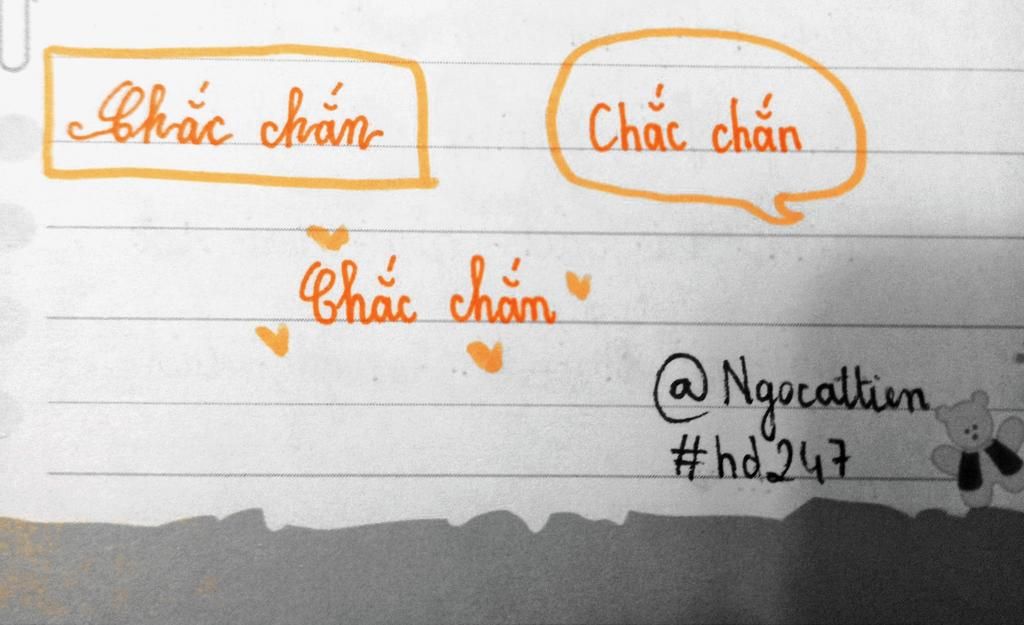 Chắc chắn
Chắc chắn
Chắc chắn
@Ngocattien
#hd247